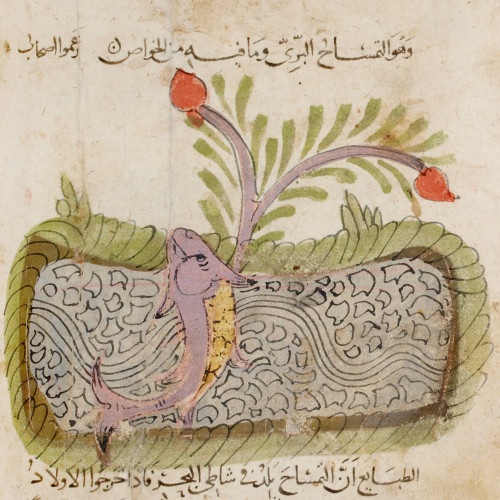 وهو التمساح البرّيّ وما فيه من الخواصّ زعموا اصحاب
الطبايع انّ التمساح يلد في شاطئ البحر فاذا اخرجوا الاولاد